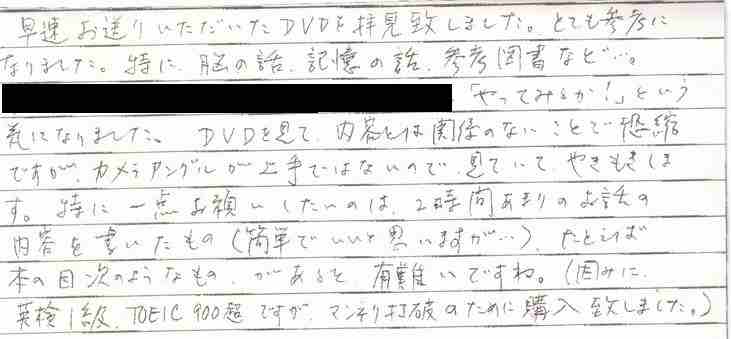 早速お送りいただいたDVDを拝見致しました。とても参考に
なりました。特に、脳の話、記憶の話、参考図書など…。
「やってみるか!」という
気になりました。DVDを見て、内容とは関係のないことで恐縮
ですが、カメラアングルが上手ではないので、見ていて、やきもきしま
す。特に一点お願いしたいのは、2時間あまりのお話の
内容を書いたもの(簡単でいいと思いますが…)、たとえば
本の目次のようなもの、があると、有難いですね。(因みに、
英検1級、TOEIC 900超ですが、マンネリ打破のために購入致しました。)